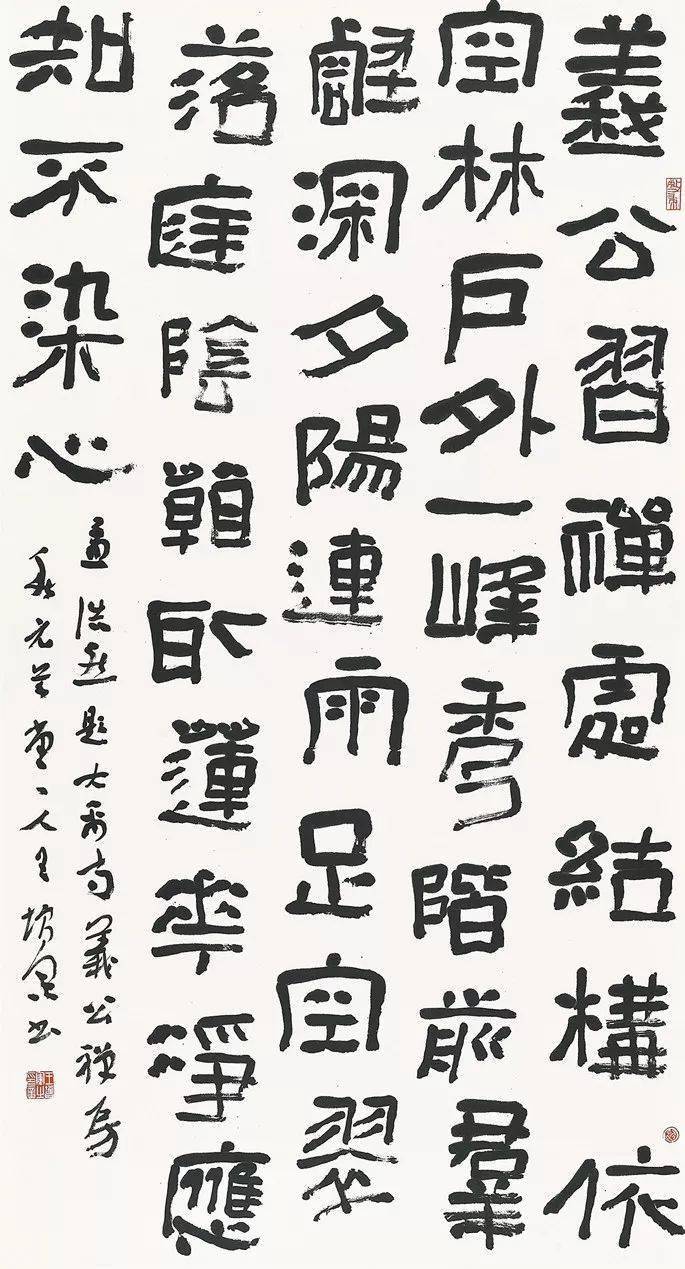 義公習禪處結構依
空林戶外一峰秀階前羣
壑深夕陽連雨足空翠
落庭陰看取蓮華淨應
知不染心
孟浩然題大禹寺義公禪房
元 堂一人王 書